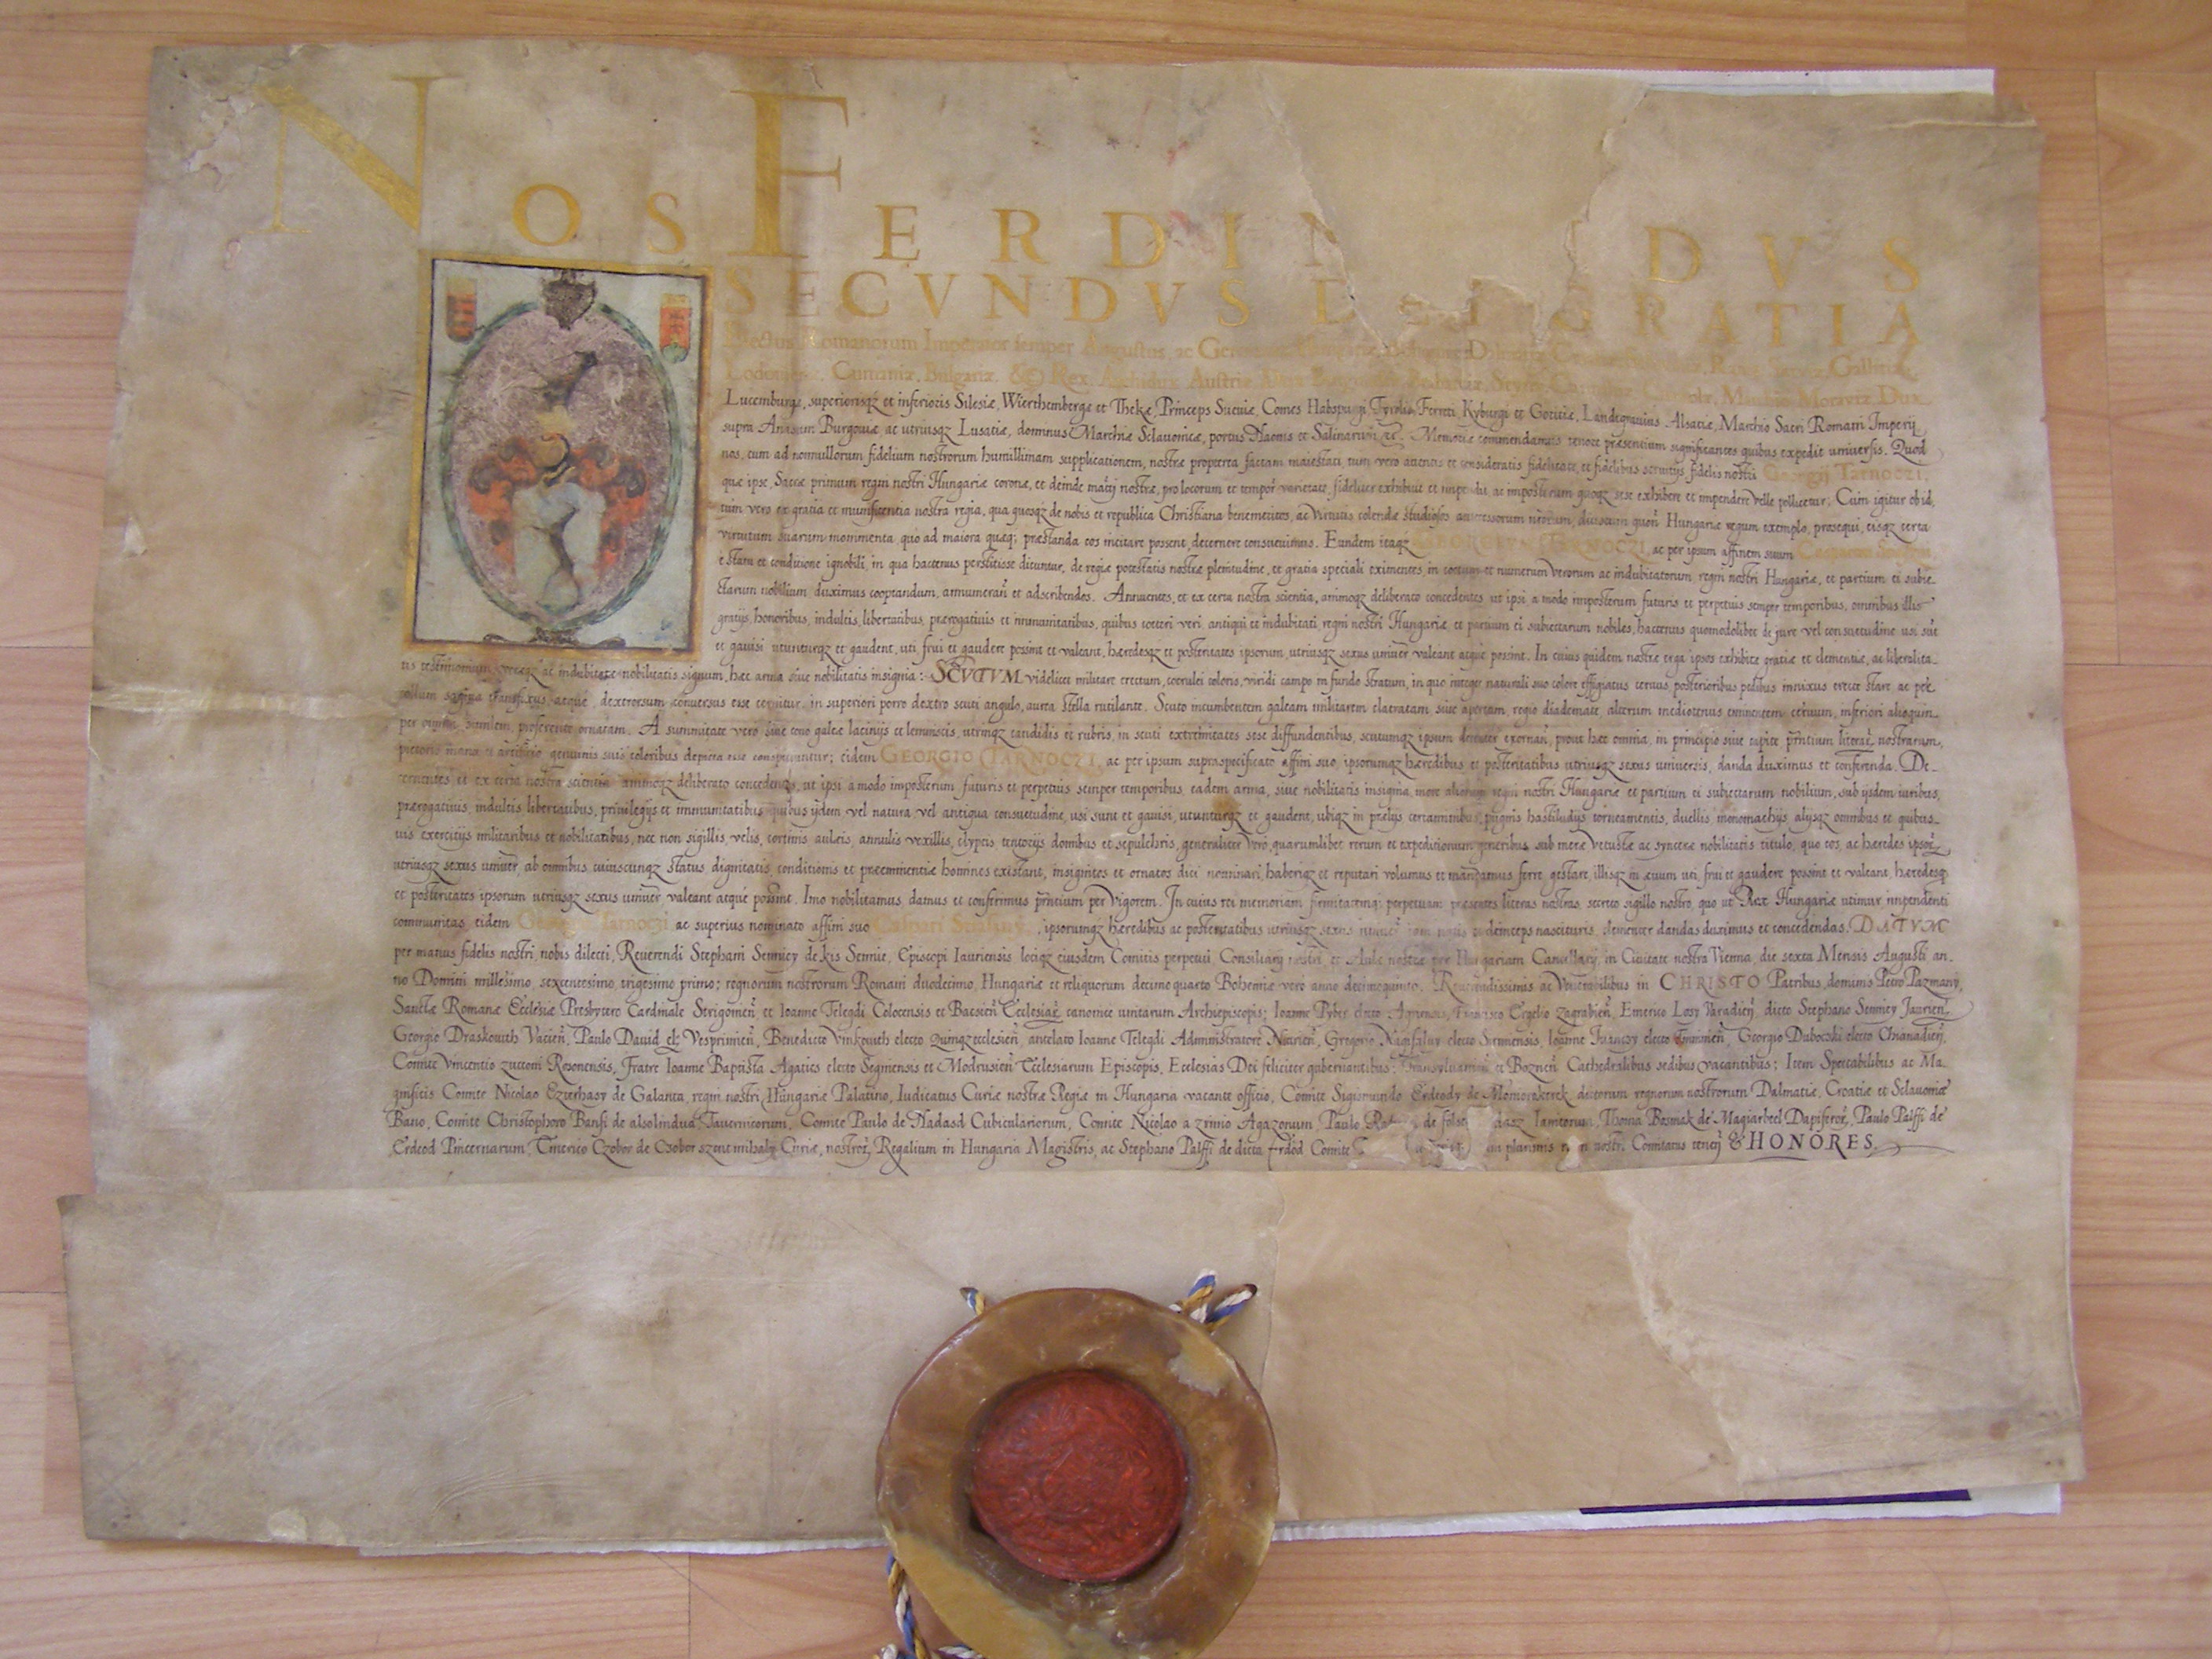 NOS FERDIN DVS
SECVNDVS D GRATIA
Electus Romanorum Imperator semper Augustus, ac Germaniæ, Hungariæ, Bohemiæ, Dalmatiæ, Croatiæ, Ramæ, Serviæ, Gallitiæ,
Lodomeriæ, Cumaniæ, Bulgariæ, &c Rex, Archidux Austriæ, Dux Burgundiæ, Brabantiæ, Styriæ, Marchio Moraviæ, Dux
Lucemburgæ, superiorisqz et inferioris Silesiæ, Wierthembergæ et Thekæ, Princeps Sueuiæ, Comes Habspurgi, Tyrolis, Ferreti, Kyburgi et Goritiæ, Landtgrauius Alsatiæ, Marchio Sacri Romani Imperij
supra Anasum Burgouiæ ac utriusqz Lusatiæ, dominus Marchiæ Sclauonicæ, portus Naonis et Salinarum &c. Memoriæ commendamus tenore præsentium significantes quibus expedit uniuersis. Quod
nos, cum ad nonnullorum fidelium nostrorum humillimam supplicationem, nostræ propterea factam maiestati, tum vero attentis et consideratis fidelitate, et fidelibus seruitijs, fidelis nostri Georgij Tarnoczi,
quæ ipse, Sacræ primum regni nostri Hungariæ coronæ, et deinde ma'ti nostræ, pro locorum et tempor' varietate, fideliter exhibuit et impendit, ac imposterum quoqz sese exhibere et impendere velle pollicetur; Cum igitur ob id,
tum vero ex gratia et munificentia nostra regia, qua quosqz de nobis et republica Christiana benemeritos, ac virtutis colendæ studiosos antecessorum n'rorum, diuorum quon' Hungariæ regum exemplo, prosequi, eisqz certa
virtutum suarum monimenta, quæ ad maiora quæq; præstanda eos incitare possent, decernere consueuimus. Eundem itaqz GEORGIVM TARNOCZI, ac per ipsum affinem suum
e statu et conditione ignobili, in qua hactenus perstitisse dicuntur, de regiæ potestatis nostræ plenitudine, et gratia speciali eximentes, in coetum et numerum verorum ac indubitatorum regni nostri Hungariæ, et partium ei subie-
ctarum nobilium duximus cooptandum, annumeran' et adscribendos. Annuentes, et ex certa nostra scientia, animoqz deliberato concedentes ut ipsi a modo imposterum futuris et perpetuis semper temporibus, omnibus illis
gratijs, honoribus, indultis, libertatibus, prærogatiuis et immunitatibus, quibus coeteri veri, antiqui et indubitati regni nostri Hungariæ, et partium ei subiectarum nobiles, hactenus quomodolibet de jure vel consuetudine usi su't
et gauisi utunturqz et gaudent, uti, frui et gaudere possint et valeant, hæredesqz et posteritates ipsorum, utriusqz sexus uniuer' valeant atque possint. In cuius quidem nostræ erga ipsos exhibitæ gratiæ et clementiæ, ac liberalita-
tis testimonium, veræqz ac indubitatæ nobilitatis signum, hæc arma siue nobilitatis insignia: SCVTVM videlicet militare erectum, coerulei coloris, viridi campo in fundo stratum, in quo integer naturali suo colore effigiatus ceruus, posterioribus pedibus innixus erecte stare, ac per
collum sagitta transfixus atque, dextrorsum conuersus esse cernitur, in superiori porro dextro scuti angulo, aurea stella rutilante. Scuto incumbentem galeam militarem clatratam, siue apertam, regio diademate, alterum mediotenus eminentem ceruum, inferiori alioquin
per omnia similem, proferente ornatam. A summitate vero siue cono galeæ lacinijs et lemniscis, utrinqz candidis et rubris, in scuti extremitates sese diffundentibus, scutumqz ipsum decenter exornan', prout hæc omnia, in principio siue capite p'ntium literar' nostrarum,
pictoris manu et artificio genuinis suis coloribus depicta esse conspiciuntur; eidem GEORGIO TARNOCZI, ac per ipsum supraspecificato affini suo, ipsorumqz hæredibus et posteritatibus utriusqz sexus uniuersis, danda duximus et conferenda. De-
cernentes et ex certa nostra scientia animoqz deliberato concedentes, ut ipsi a modo imposterum futuris et perpetuis semper temporibus, eadem arma, siue nobilitatis insignia, more aliorum regni nostri Hungariæ et partium ei subiectarum nobilium, sub ijsdem iuribus,
prærogatiuis, indultis, libertatibus, priuilegijs et immunitatibus quibus ijdem vel natura vel antiqua consuetudine, usi sunt et gauisi, utunturqz et gaudent, ubiqz in prælijs certaminibus, pugnis hastiludijs torneamentis, duellis, monomachijs, alijsqz omnibus et quibus-
uis exercitijs militaribus et nobilitatibus, nec non sigillis, velis, cortinis auleis, annulis vexillis, clypeis tentorijs domibus et sepulchris, generaliter vero, quarumlibet rerum et expeditionum generibus, sub meræ vetustæ ac synceræ nobilitatis titulo, quo eos, ac hæredes ipsor'
utriusqz sexus uniuer' ab omnibus, cuiuscunqz status, dignitatis, conditionis et præeminentiæ homines existant, insignitos et ornatos dici nominari, haberiqz et reputari volumus et mandamus ferre, gestare, illisqz in æuum uti, frui et gaudere possint et valeant, hæredesqz
et posteritates ipsorum utriusqz sexus uniuer' valeant atque possint. Imo nobilitamus, damus et conferimus p'ntium per vigorem. In cuius rei memoriam firmitatemq; perpetuam; præsentes literas nostras, secreto sigillo nostro, quo ut Rex Hungariæ utimur impendenti
communitas eidem Georgio Tarnoczi ac superius nominato affini suo , ipsorumqz hæredibus ac posteritatibus utriusqz sexus iam natis et deinceps nascituris, clementer dandas duximus et concedendas. DATVM
per manus fidelis nostri, nobis dilecti, Reuerendi Stephani Sennicy de kis Sennie, Episcopi Iauriensis, lociqz eiusdem Comitis perpetui, Consiliarij nostri, et Aulæ nostræ per Hungariam Cancellarij, in Ciuitate nostra Vienna, die sexta Mensis Augusti an-
no Domini millesimo, sexcentesimo, trigesimo primo; regnorum nostrorum Romani duodecimo, Hungariæ et reliquorum decimo quarto Bohemiæ vero anno decimoquinto. Reuerendissimis ac Venerabilibus in CHRISTO Patribus, dominis Petro Pazmany,
Sanctæ Romanæ Ecclesiæ Presbytero Cardinale Strigonien' et Ioanne Telegdi Colocensis et Bacsien' Ecclesiar' canonice unitarum Archiepiscopis; Ioanne Pyber electo Agriensi, Francisco Ergelio Zagrabien', Emerico Losy Varadien', dicto Stephano Senniey Iaurien',
Georgio Draskouith Vacien', Paulo Dauid el: Vesprimien', Benedicto Vinkouith electo Quinqzecclesien', antelato Ioanne Telegdi Administratore Nitrien', Gregorio Nagifaluy electo Sirmiensis, Ioanne Francsy electo Tininien', Georgio Dubocski electo Chanadien',
Comite Vincentio zucconi Rosonensis, Fratre Ioanne Baptista Agatics electo Segniensis et Modrusien' Ecclesiarum Episcopis, Ecclesias Dei feliciter gubernantibus; Transyluanien' et Boznen' Cathedralibus sedibus vacantibus; Item Spectabilibus ac Ma-
gnificis Comite Nicolao Ezterhasy de Galanta, regni nostri Hungariæ Palatino, Iudicatus Curiæ nostræ Regiæ in Hungaria vacante officio, Comite Sigismundo Erdeody de Monorokerek dictorum regnorum nostrorum Dalmatiæ, Croatiæ et Sclauoniæ
Bano, Comite Christophoro Banfi de alsolindua Tauernicorum, Comite Paulo de Nadasd Cubiculariorum, Comite Nicolao a zrinio Agazonum, Paulo de felse Ianitorum, Thoma Bosniak de Magiarbeel Dapiferor', Paulo Palffi de
Erdeod Pincernarum, Emerico Czobor de Czoborszentmihaly Curiæ, nostror' Regalium in Hungaria Magistris, ac Stephano Palffi de dicta Erdöd Comite plurimis regni nostri Comitatus tenen' & HONORES.